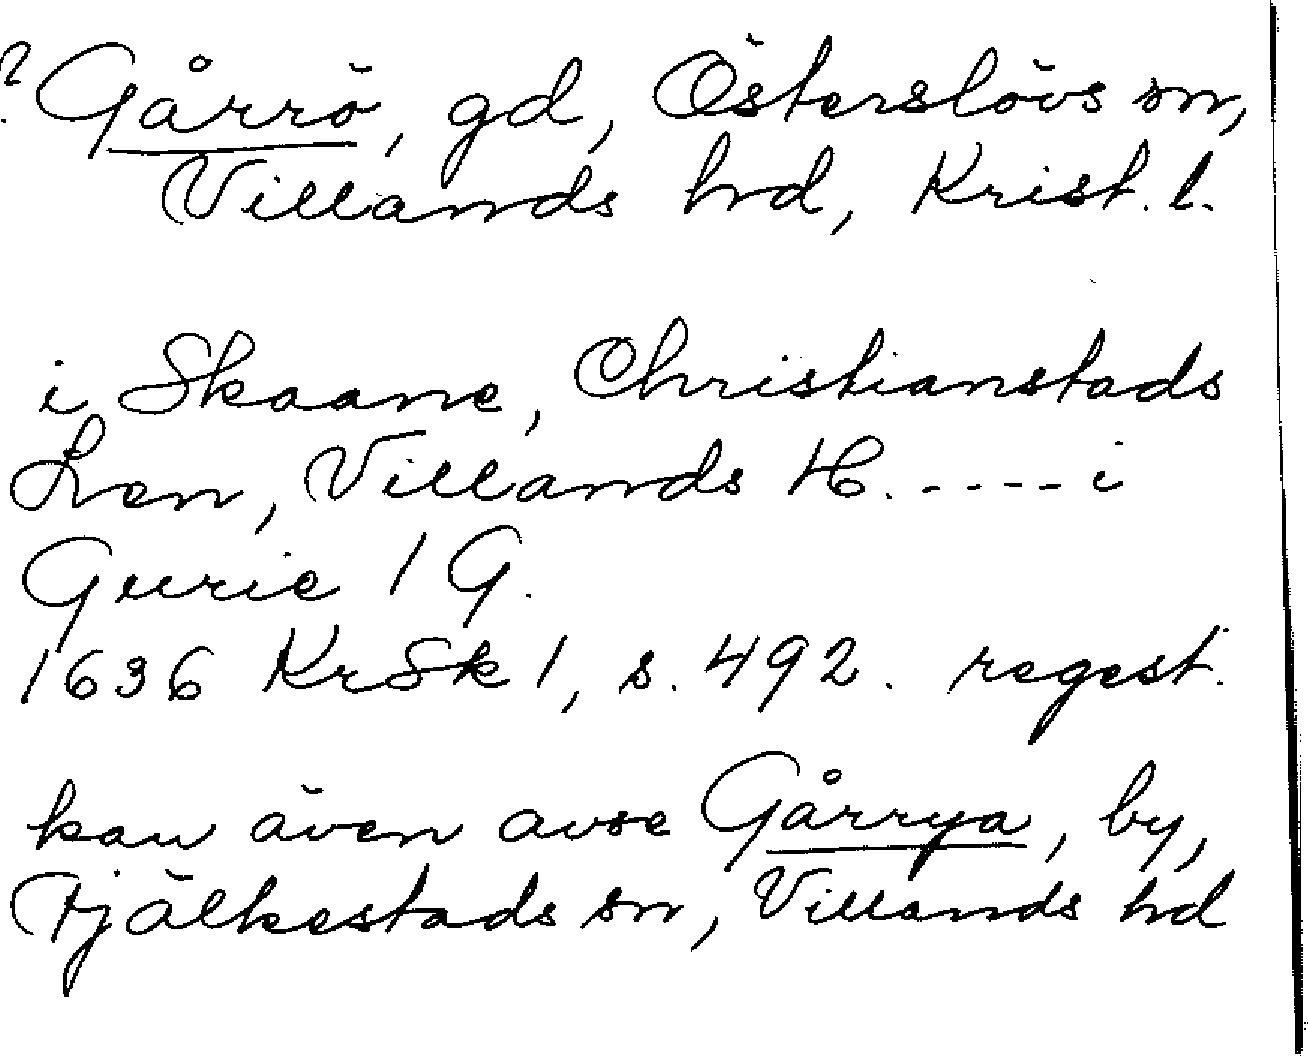 ? Gårrö, gd, Österslövs sn,
Villands hd, Krist. l.
i Skaane, Christianstads
Len, Villands H. - - - - - i
Gurie 1 G.
1636 KrSk 1, s. 492. regest.
kan även avse Gårrya, by,
Fjälkestads sn, Villands hd